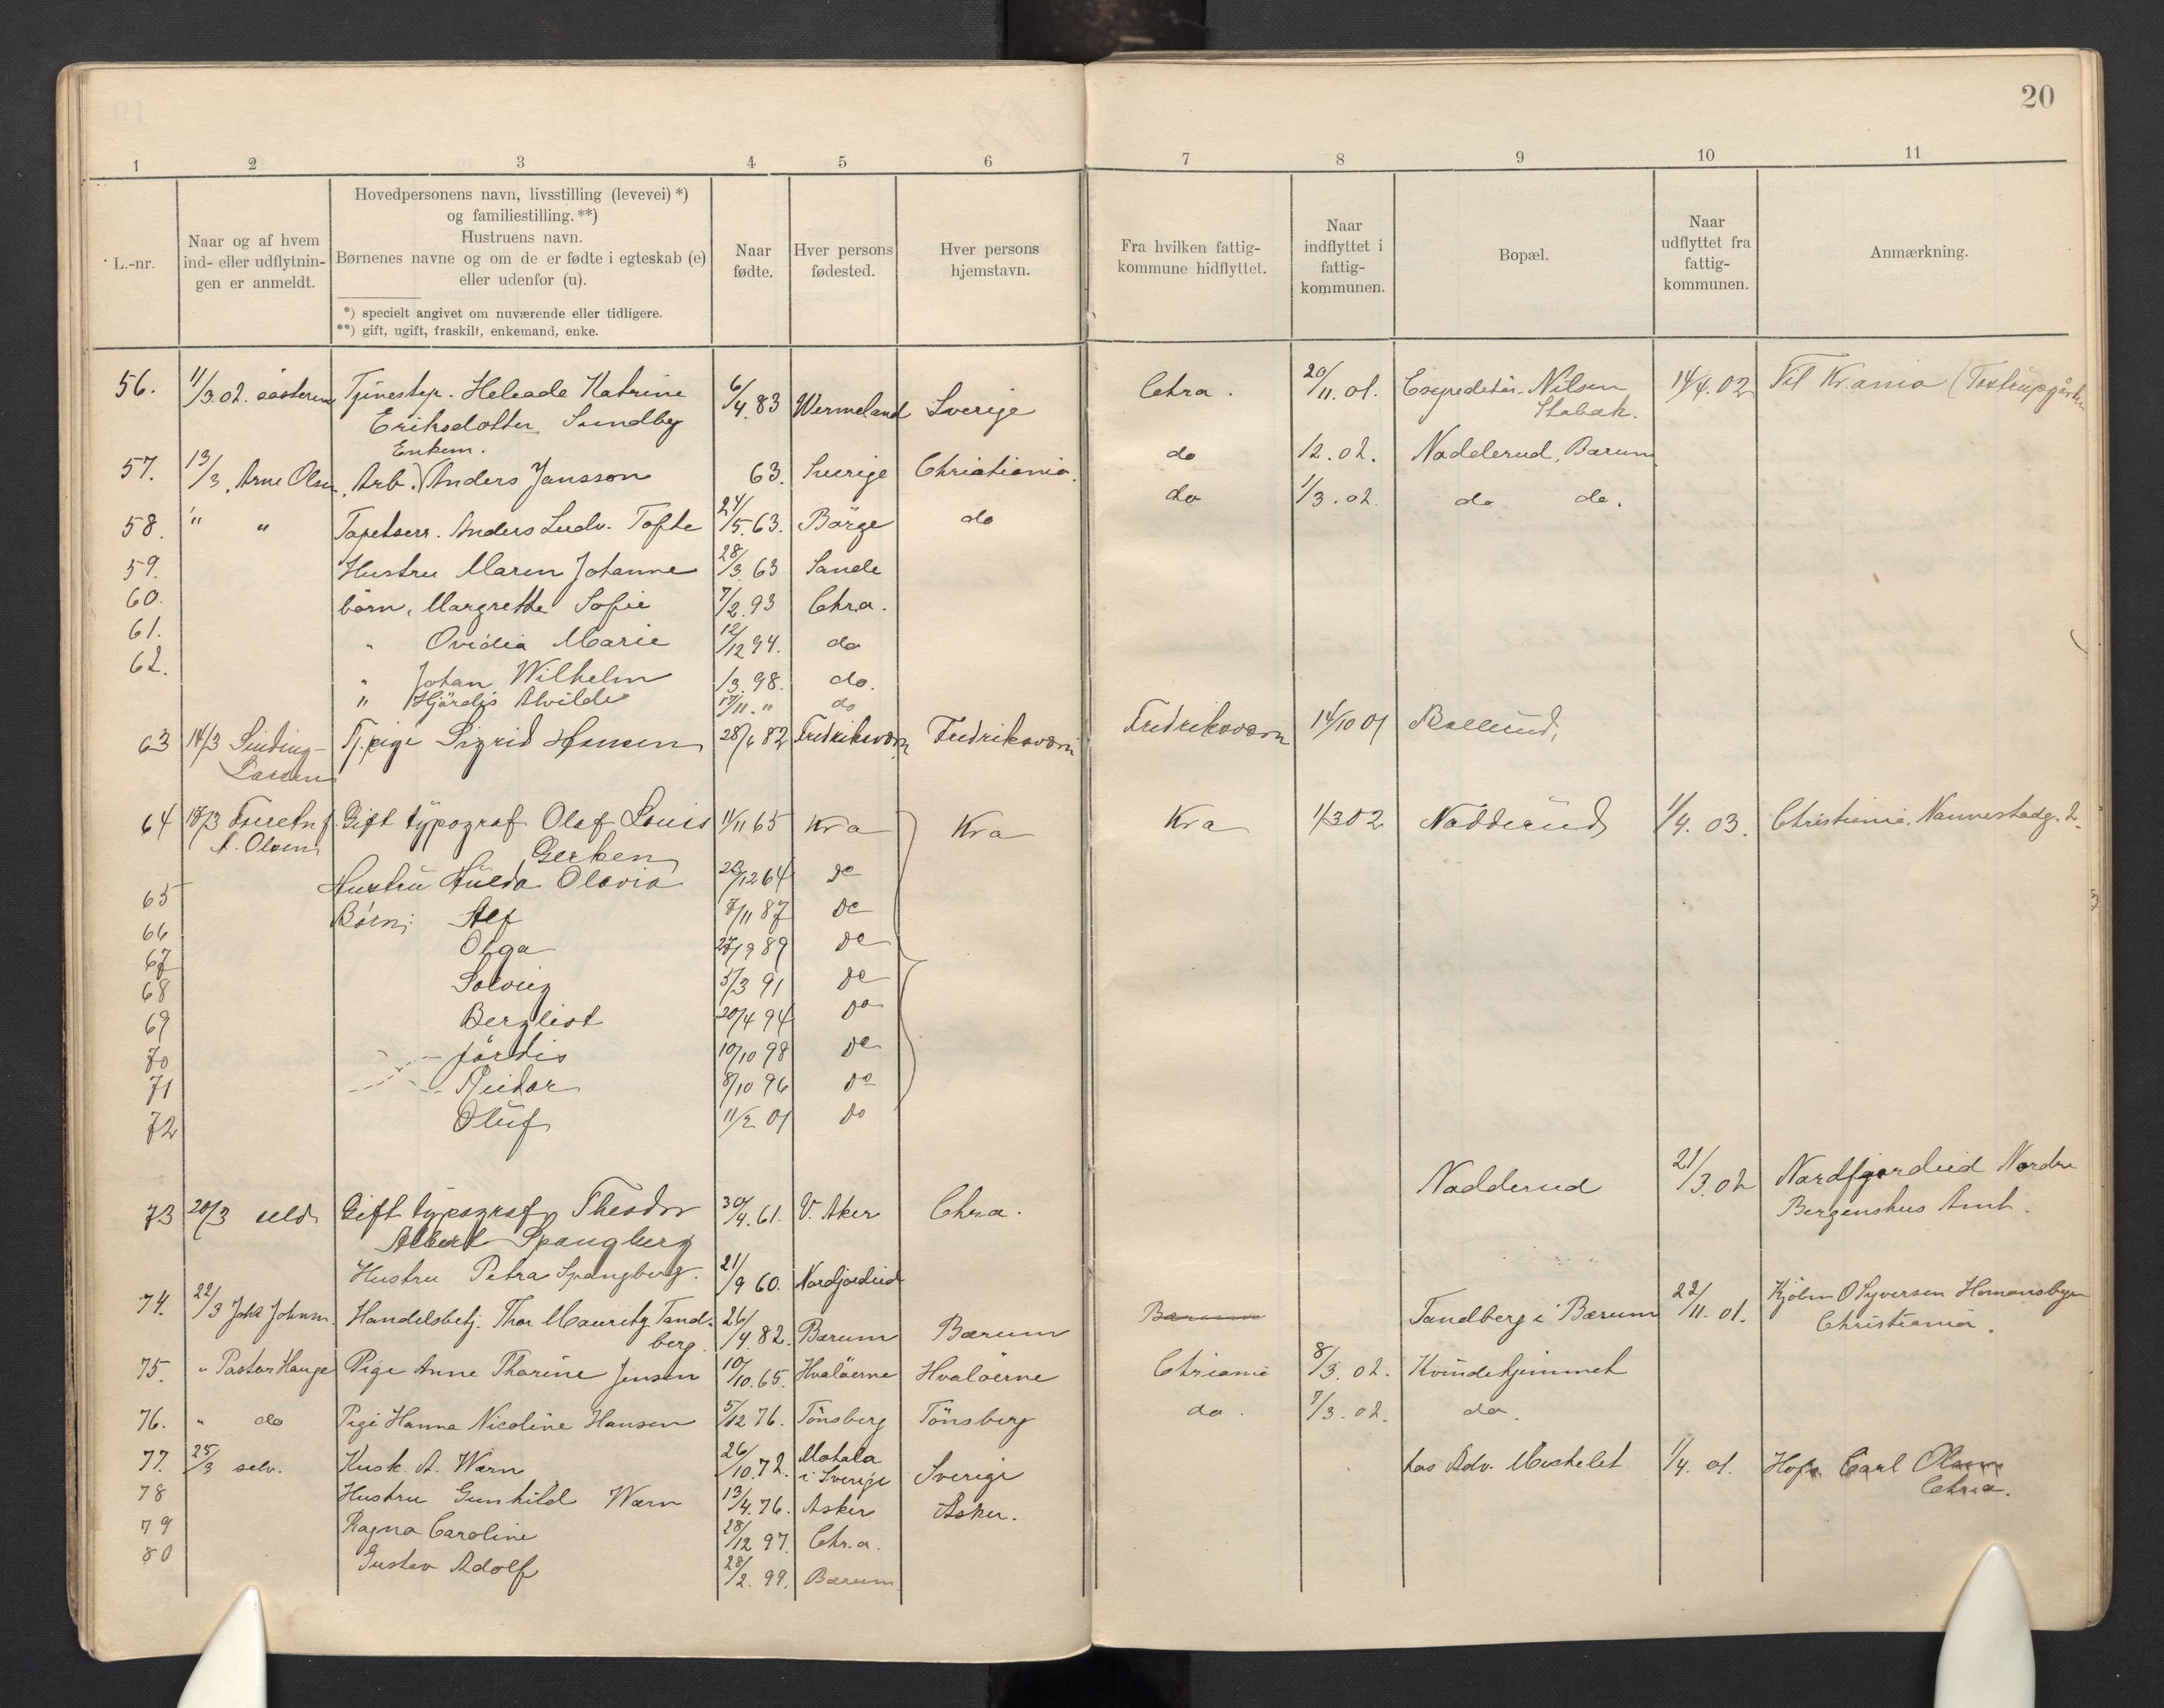 20
1 2 3 4 5 6 7 8 9 10 11
L.-nr.
Naar og af hvem
ind- eller udflytnin-
gen er anmeldt.
Hovedpersonens navn, livsstilling (levevei) *)
og familiestilling. **)
Hustruens navn.
Børnenes navne og om de er fødte i egteskab (e)
eller udenfor (u).
*) specielt angivet om nuværende eller tidligere.
**) gift, ugift, fraskilt, enkemand, enke.
Naar
fødte.
Hver persons
fødested.
Hver persons
hjemstavn.
Fra hvilken fattig-
kommune hidflyttet.
Naar
indflyttet i
fattig-
kommunen.
Bopæl.
Naar
udflyttet fra
fattig-
kommunen.
Anmærkning.
56. 11/3.02. søsteren Tjenestep. Katrine 6/4.83 Wermeland Sverige Chra. 20/11.01. Expeditør Nilsen 14/4.02 Til Kr.ania
Eriksdotter Sundby Stabæk.
Enkem.
57. 13/3. Arne Olsen Arb. Anders Jansson 63. Sverige Christiania. do 12.02. Nadderud, Bærum
58. " " Tapetserr. Anders Ludv. Tofte 24/5.63. Børge do do 1/3.02. do do.
59. Hustru Maren Johanne 28/3.63 Sande
60. børn, Margrethe Sofie 7/2.93 Chra.
61. " Ovidia Marie 12/12 94. do
62. " Johan Wilhelm /3.98. do.
" Hjørdis Alvilde 17/11. " do
63 14/3 Sinding- Tj.pige Sigrid Hansen 28/6 82 Fredriksværn Fredriksværn Fredriksværn 14/10 01 Ballerud,
Larsen
64 18/3 A. Olsen Gift typograf Olaf Louis 11/11 65 Kra Kra Kra 1/3 02 Nadderud 1/4.03. Christiania. Nannestadg. 2.
Gerken
65 Hustru Hulda Olavia 20/12 64 do
66 Børn: Alf 7/11 87 do
67 Olga 27/9 89 do
68 Solveig 5/3 91 do
69 Bergliot 20/4 94 do
70 Jørdis 10/10 98 do
71 Reidar 8/10 96 do
72 Oluf 11/2 01 do
73 20/3 selv Gift typograf Theodor 30/4.61. V. Aker Chra. Nadderud 21/3.02 Nordfjordeid Nordre
Albert Spangberg Bergenshus Amt.
Hustru Petra Spangberg. 21/9 60. Nordfjordeid
74. 22/3 Johs Johnsen. Handelsbetj. Thor Mauritz Tand- 26/4.82. Bærum Bærum Bærum Tandberg i Bærum 22/11.01. Kjøbm O Syversen Homansbyen
berg. Christiania.
75. " Pastor Hauge Pige Anne Tharine Jensen 10/10.65. Hvaløerne Hvaløerne Chriania 8/3.02. Kvindehjemmet
76. " do Pige Hanna Nicoline Hansen 5/12 76. Tønsberg Tønsberg do. 7/3.02. do.
77. 25/3 selv. Kusk. A. Wærn 26/10.72. Motala Sverige hos Adv. Meshelet 1/4.01. Carl Olsen
i Sverige Chria.
78 Hustru Gunhild Wærn 13/4.76. Asker Asker.
79 Ragna Caroline 28/12 97. Chr.a.
80 Gustav Adolf 28/2.99. Bærum